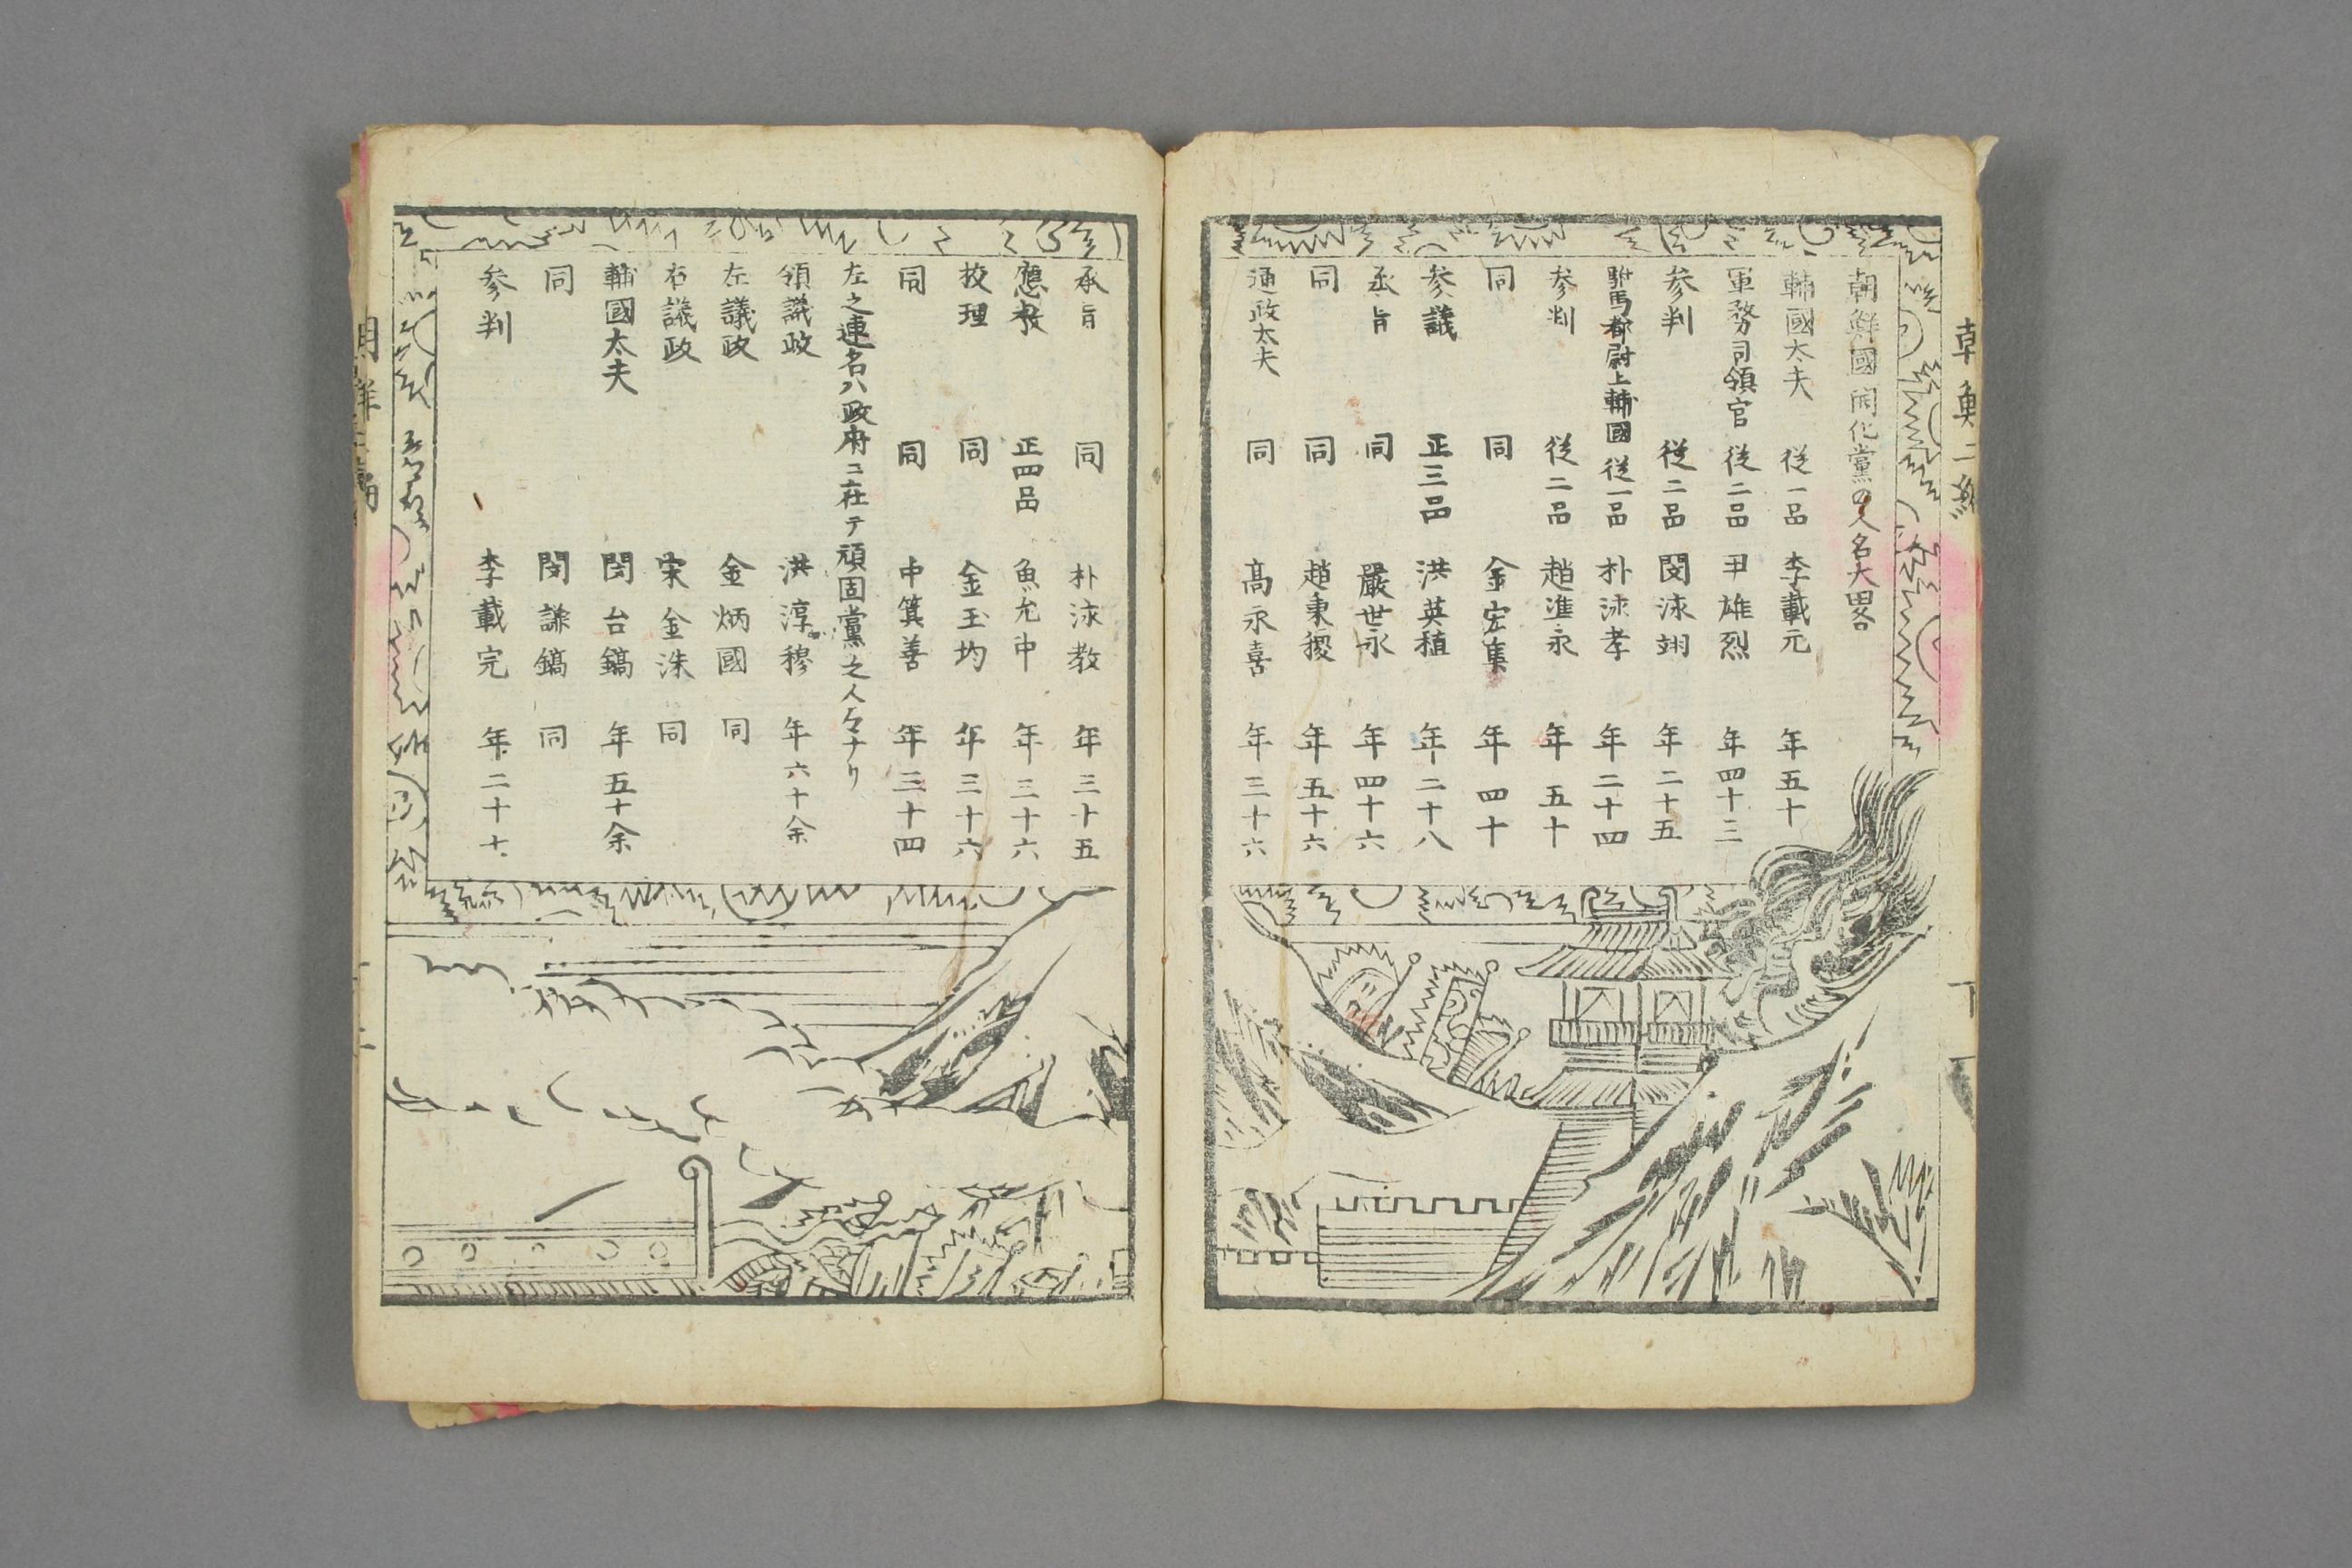 朝鮮國開化黨の人名大畧
輔國太夫 従一品 李載元 年五十
軍務司領官 従二品 尹雄烈 年四十三
参判 従二品 閔泳翊 年二十五
駙馬都尉上輔國 従一品 朴泳孝 年二十四
参判 従二品 趙準永 年五十
同 同 金宏集 年四十
参議 正三品 洪英植 年二十八
承旨 同 嚴世永 年四十六
同 同 趙秉稷 年五十六
通政太夫 同 高永喜 年三十六
承旨 同 朴泳教 年三十五
應教 正四品 魚允中 年三十六
校理 同 金玉均 年三十六
同 同 申箕善 年三十四
左之連名ハ政府ニ在テ頑固黨之人々ナリ
領議政 洪淳穆 年六十余
左議政 金炳國 同
右議政 宋金洙 同
輔國太夫 閔台鎬 年五十余
同 閔謙鎬 同
参判 李載完 年二十七